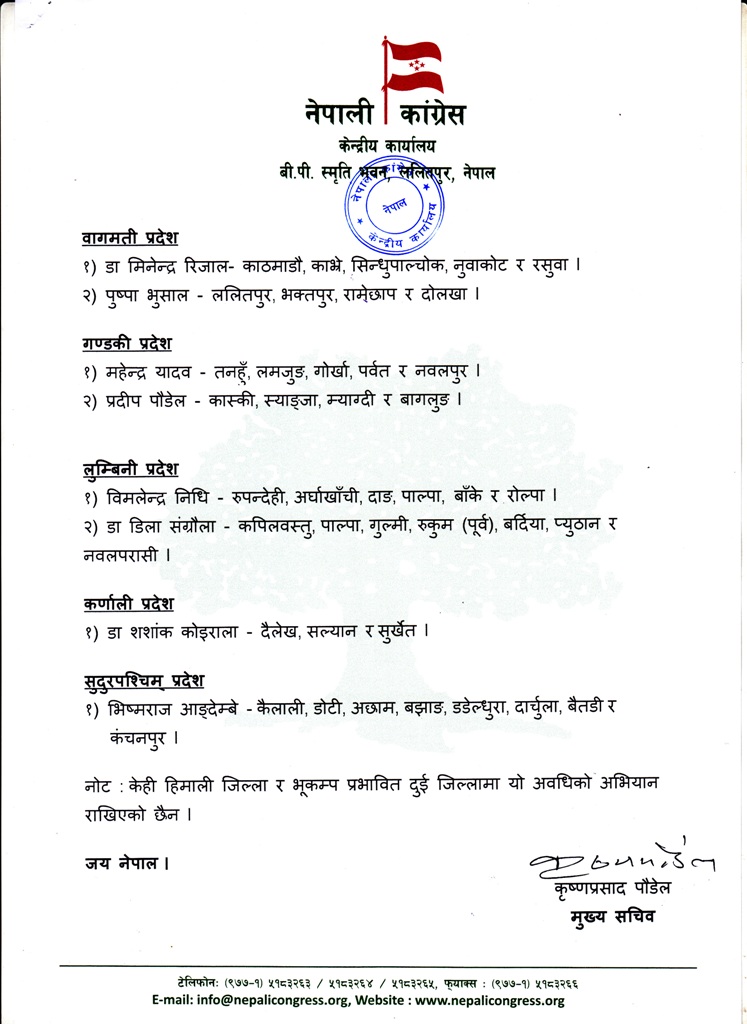 नेपाली कांग्रेस
केन्द्रीय कार्यालय
बी.पी. स्मृति भवन, ललितपुर, नेपाल
नेपाली कांग्रेस
नेपाल
केन्द्रीय कार्यालय
वागमती प्रदेश
१) डा मिनेन्द्र रिजाल- काठमाडौ, काभ्रे, सिन्धुपाल्चोक, नुवाकोट र रसुवा ।
२) पुष्पा भुसाल - ललितपुर, भक्तपुर, रामेछाप र दोलखा ।
गण्डकी प्रदेश
१) महेन्द्र यादव - तनहूँ, लमजुङ, गोर्खा, पर्वत र नवलपुर ।
२) प्रदीप पौडेल - कास्की, स्याङ्जा, म्याग्दी र बागलुङ ।
लुम्बिनी प्रदेश
१) विमलेन्द्र निधि - रुपन्देही, अर्घाखाँची, दाङ, पाल्पा, बाँके र रोल्पा ।
२) डा डिला संग्रौला - कपिलवस्तु, पाल्पा, गुल्मी, रुकुम (पूर्व), बर्दिया, प्युठान र
नवलपरासी ।
कर्णाली प्रदेश
१) डा शशांक कोइराला - दैलेख, सल्यान र सुर्खेत ।
सुदुरपश्चिम् प्रदेश
१) भिष्मराज आङ्देम्बे - कैलाली, डोटी, अछाम, बझाङ, डडेल्धुरा, दार्चुला, बैतडी र
कंचनपुर ।
नोट : केही हिमाली जिल्ला र भूकम्प प्रभावित दुई जिल्लामा यो अवधिको अभियान
राखिएको छैन ।
जय नेपाल ।
कृष्णप्रसाद पौडेल
मुख्य सचिव
टेलिफोन: (९७७-१) ५१८३२६३ / ५१८३२६४ / ५१८३२६५, फ्याक्स : (९७७-१) ५१८३२६६
E-mail: info@nepalicongress.org, Website : www.nepalicongress.org